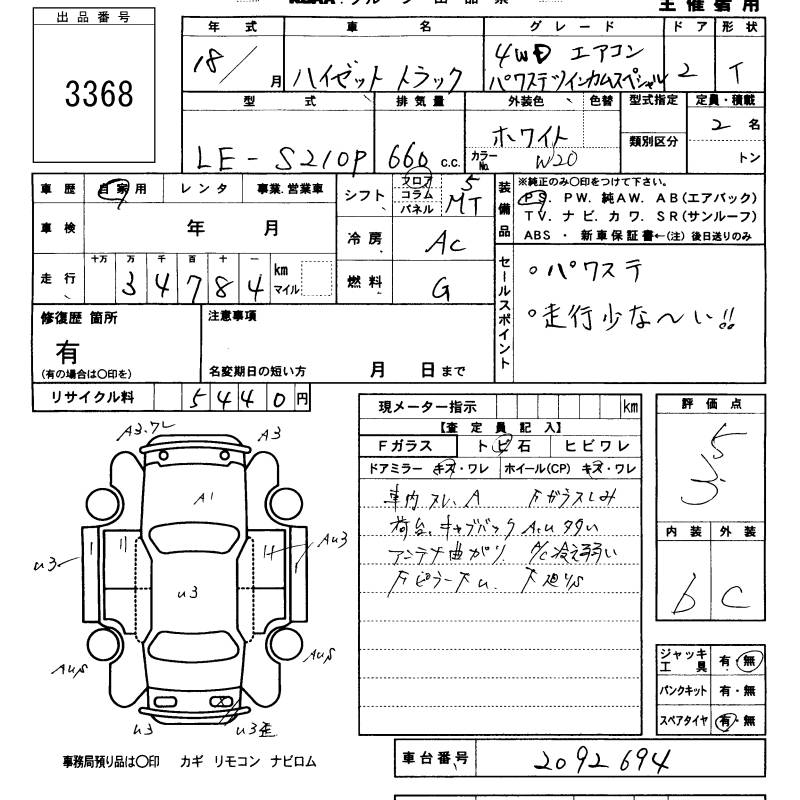 出品番号
3368
主催者用
年式 車名 グレード ドア 形状
18/ 月 ハイゼット トラック 4WD エアコン パワステツインカムスペシャル 2 T
型式 排気量 外装色 色替 型式指定 定員・積載
LE-S210P 660 c.c. ホワイト カラーNo. W20 類別区分 2 名 トン
車歴 自家用 レンタ 事業.営業車
シフト フロア コラム パネル 5 MT
装備品
※純正のみ〇印をつけて下さい。
PS. PW. 純AW. AB(エアバック)
TV. ナビ. カワ. SR(サンルーフ)
ABS ・ 新車保証書←(注) 後日送りのみ
車検 年 月
冷房 AC
走行 十万 万 千 百 十 一
34784 km マイル
燃料 G
セールスポイント
。パワステ
。走行少な〜い!!
修復歴 箇所
有
(有の場合は〇印を)
注意事項
名変期日の短い方 月 日まで
リサイクル料 5440円
現メーター指示 km
【査定員記入】
Fガラス トビ石 ヒビワレ
ドアミラー キズ・ワレ ホイール(CP) キズ・ワレ
車内スレ、A Fガラスしみ
荷台、キャブバック A.u 多い
アンテナ曲がり A/C冷え弱い
FピラーF u.
評価点
3.5
内装 外装
b C
A3.ワレ A3
A1
u3 u3 Au3
AuS AuS
u3 u3歪
ジャッキ工具 有・無
パンクキット 有・無
スペアタイヤ 有・無
事務局預り品は〇印 カギ リモコン ナビロム
車台番号 2092694